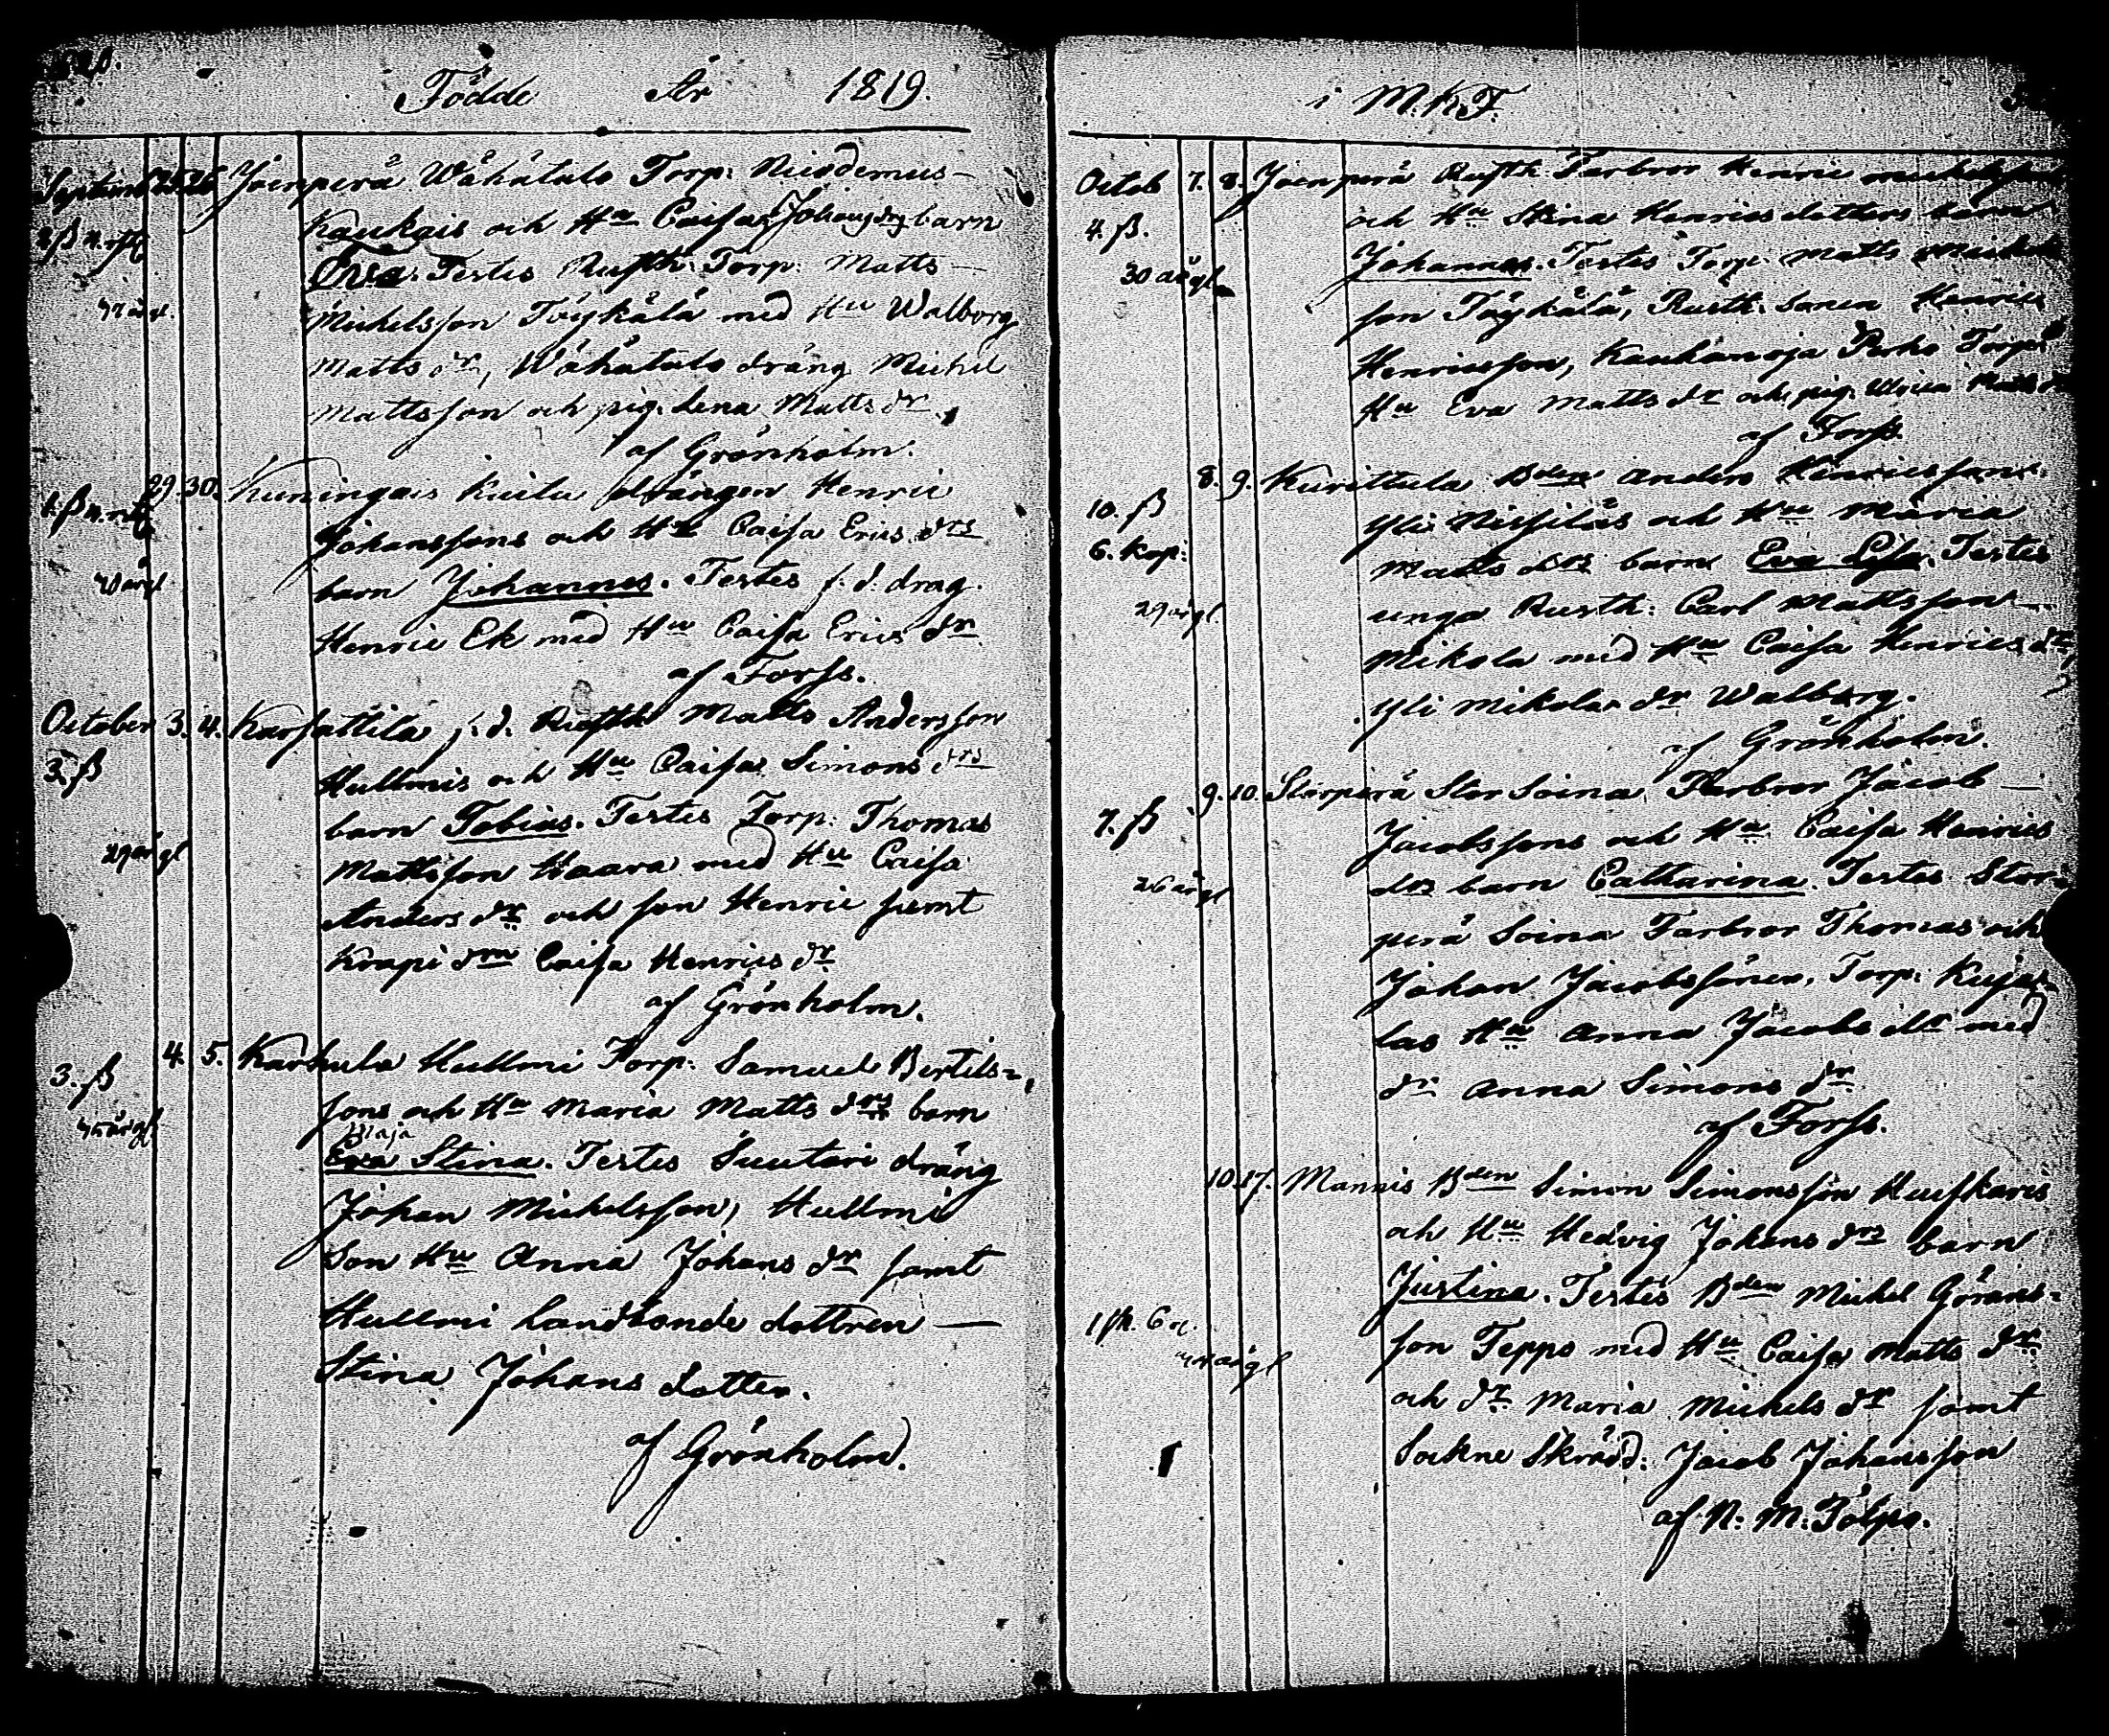 Födde År 1819.
Septemb 25 26 Joenperä Wähätalo Torp: Nicodemus
Kaukais och Hu Caisa Johansdrs barn
Eva. Testes Rusth: Torp: Matts
Michelsson Töykälä med Hu Walborg
Matts dr, Wähätalo dräng Michel
Mattsson och pig. Lena Matts dr.
af Grönholm.
29 30. Kuningais Kuilu drängen Henric
Johanssons och Hu Caisa Erics drs
barn Johannes. Testes f. d. drag.
Henric Ek med Hu Caisa Erics dr
af Forss.
October 3. 4. Karsattila f. d. Rusth Matts Andersson
3. ß
Hullmis och Hu Caisa Simons drs
barn Tobias. Testes Torp: Thomas
29 årgl
Mattsson Haara med Hu Caisa
Anders dr och son Henric samt
Krapi drn Caisa Henrics dr
af Grönholm.
4. 5. Karhula Hullmi Torp: Samuel Bertils-
3. ß
sons och Hu Maria Matts drs barn
Maja
Eva Stina. Testes Suutari dräng
Johan Michelsson, Hullmi
Son Hu Anna Johans dr samt
Hullmi Landbonde dottren —
Stina Johans dotter.
af Grönholm.
i M.K.T.
Octob 7. 8. Joenperä Rusth. Farbror Henric
4. ß.
och Hu Stina Henrics dotters barn
30 årgl
Johannes. Testes Torp. Matts
son Töykälä, Rusth. Sonen Henric
Henricsson, Kauhanoja Torp:
Hu Eva Matts dr och pig. Ulrica
af Forss.
8. 9. Kurittula Bden Anders Henricssons
10. ß
Yli Nissiläs och Hu Maria
6. Kop:
Matts drs barn Eva Lisa. Testes
29 årgl.
unga Rusth: Carl Mattsson
Mikola med Hu Caisa Henrics dr,
Yli Mikola dr Walborg.
af Grönholm.
9. 10. Storperä Stor Soina Farbror Jacob —
7. ß
Jacobssons och Hu Caisa Henrics
26 årgl
drs barn Catharina. Testes Stor-
perä Soina Farbror Thomas och
Johan Jacobssöner, Torp:
las Hu Anna Jacobs dr med
dr Anna Simons dr
af Forss.
10. 17. Mannis Bden Simon Simonsson Huiskaris
och Hu Hedvig Johans drs barn
Justina. Testes Bden Michel Görans-
son Teppo med Hu Caisa Matts dr
och dr Maria Michels dr samt
Sockne Skrädd: Jacob Johansson
af N. M. Tolpo.